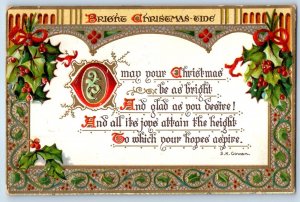 BRIGHT CHRISTMAS-TIDE
O may your Christmas
be as bright
And glad as you desire!
And all its joys attain the height
To which your hopes aspire.